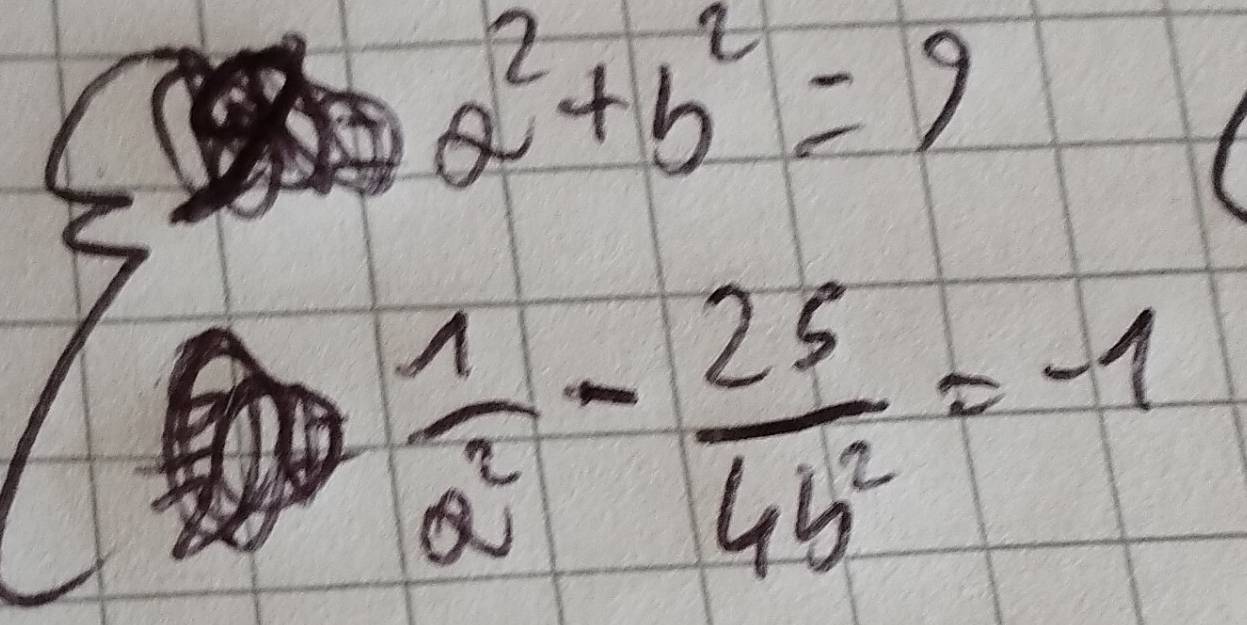 a² + b² = 9
1/a² - 25/4b² = -1